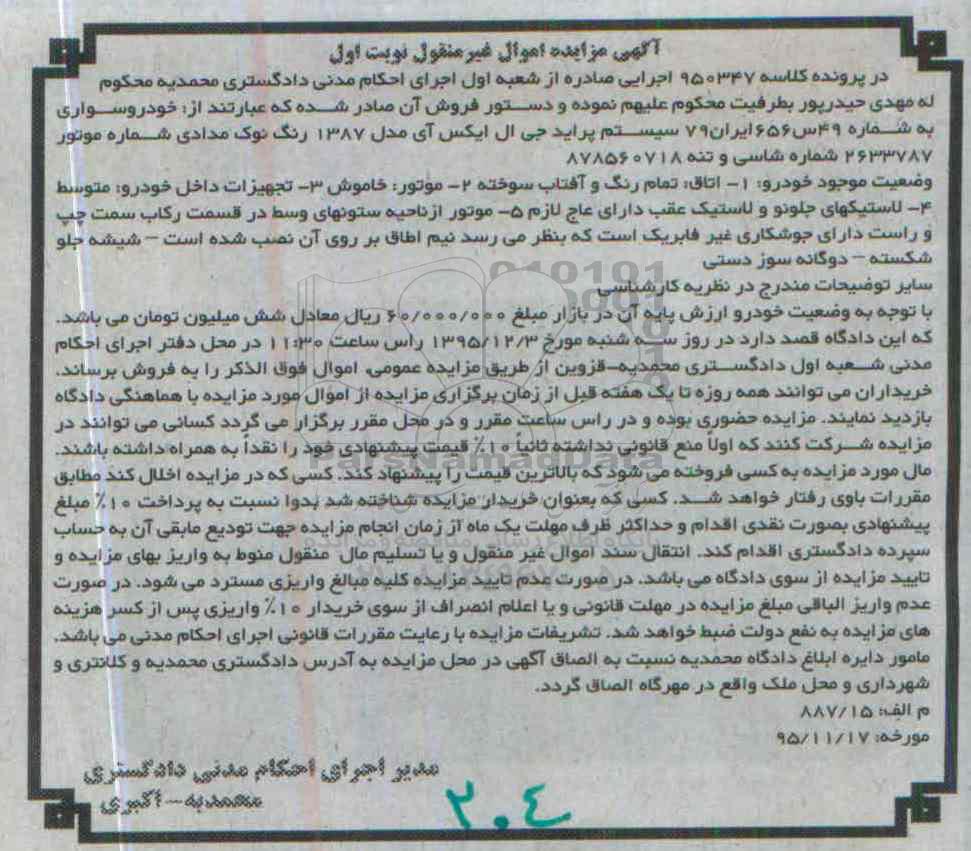 آگهی مزایده اموال غیرمنقول نوبت اول
در پرونده کلاسه ۹۵۰۳۴۷ اجرایی صادره از شعبه اول اجرای احکام مدنی دادگستری محمدیه محکوم
له مهدی حیدرپور بطرفیت محکوم علیهم نموده و دستور فروش آن صادر شده که عبارتند از: خودروسواری
به شماره ۴۹س۶۵۶ایران۷۹ سیستم پراید جی ال ایکس آی مدل ۱۳۸۷ رنگ نوک مدادی شماره موتور
۲۶۳۳۷۸۷ شماره شاسی و تنه ۸۷۸۵۶۰۷۱۸
وضعیت موجود خودرو: ۱- اتاق: تمام رنگ و آفتاب سوخته ۲- موتور: خاموش ۳- تجهیزات داخل خودرو: متوسط
۴- لاستیکهای جلونو و لاستیک عقب دارای عاج لازم ۵- موتور ازناحیه ستونهای وسط در قسمت رکاب سمت چپ
و راست دارای جوشکاری غیر فابریک است که بنظر می رسد نیم اطاق بر روی آن نصب شده است – شیشه جلو
شکسته – دوگانه سوز دستی
سایر توضیحات مندرج در نظریه کارشناسی
با توجه به وضعیت خودرو ارزش پایه آن در بازار مبلغ ۶۰/۰۰۰/۰۰۰ ریال معادل شش میلیون تومان می باشد.
که این دادگاه قصد دارد در روز سه شنبه مورخ ۱۳۹۵/۱۲/۳ راس ساعت ۱۱:۳۰ در محل دفتر اجرای احکام
مدنی شعبه اول دادگستری محمدیه-قزوین از طریق مزایده عمومی، اموال فوق الذکر را به فروش برساند.
خریداران می توانند همه روزه تا یک هفته قبل از زمان برگزاری مزایده از اموال مورد مزایده با هماهنگی دادگاه
بازدید نمایند. مزایده حضوری بوده و در راس ساعت مقرر و در محل مقرر برگزار می گردد کسانی می توانند در
مزایده شرکت کنند که اولاً منع قانونی نداشته ثانیاً ۱۰٪ قیمت پیشنهادی خود را نقداً به همراه داشته باشند.
مال مورد مزایده به کسی فروخته می شود که بالاترین قیمت را پیشنهاد کند. کسی که در مزایده اخلال کند مطابق
مقررات باوی رفتار خواهد شد. کسی که بعنوان خریدار مزایده شناخته شد بدوا نسبت به پرداخت ۱۰٪ مبلغ
پیشنهادی بصورت نقدی اقدام و حداکثر ظرف مهلت یک ماه از زمان انجام مزایده جهت تودیع مابقی آن به حساب
سپرده دادگستری اقدام کند. انتقال سند اموال غیر منقول و یا تسلیم مال منقول منوط به واریز بهای مزایده و
تایید مزایده از سوی دادگاه می باشد. در صورت عدم تایید مزایده کلیه مبالغ واریزی مسترد می شود. در صورت
عدم واریز الباقی مبلغ مزایده در مهلت قانونی و یا اعلام انصراف از سوی خریدار ۱۰٪ واریزی پس از کسر هزینه
های مزایده به نفع دولت ضبط خواهد شد. تشریفات مزایده با رعایت مقررات قانونی اجرای احکام مدنی می باشد.
مامور دایره ابلاغ دادگاه محمدیه نسبت به الصاق آگهی در محل مزایده به آدرس دادگستری محمدیه و کلانتری و
شهرداری و محل ملک واقع در مهرگاه الصاق گردد.
م الف: ۸۸۷/۱۵
مورخه: ۹۵/۱۱/۱۷
مدیر اجرای احکام مدنی دادگستری
محمدیه- اکبری
۲۰٤